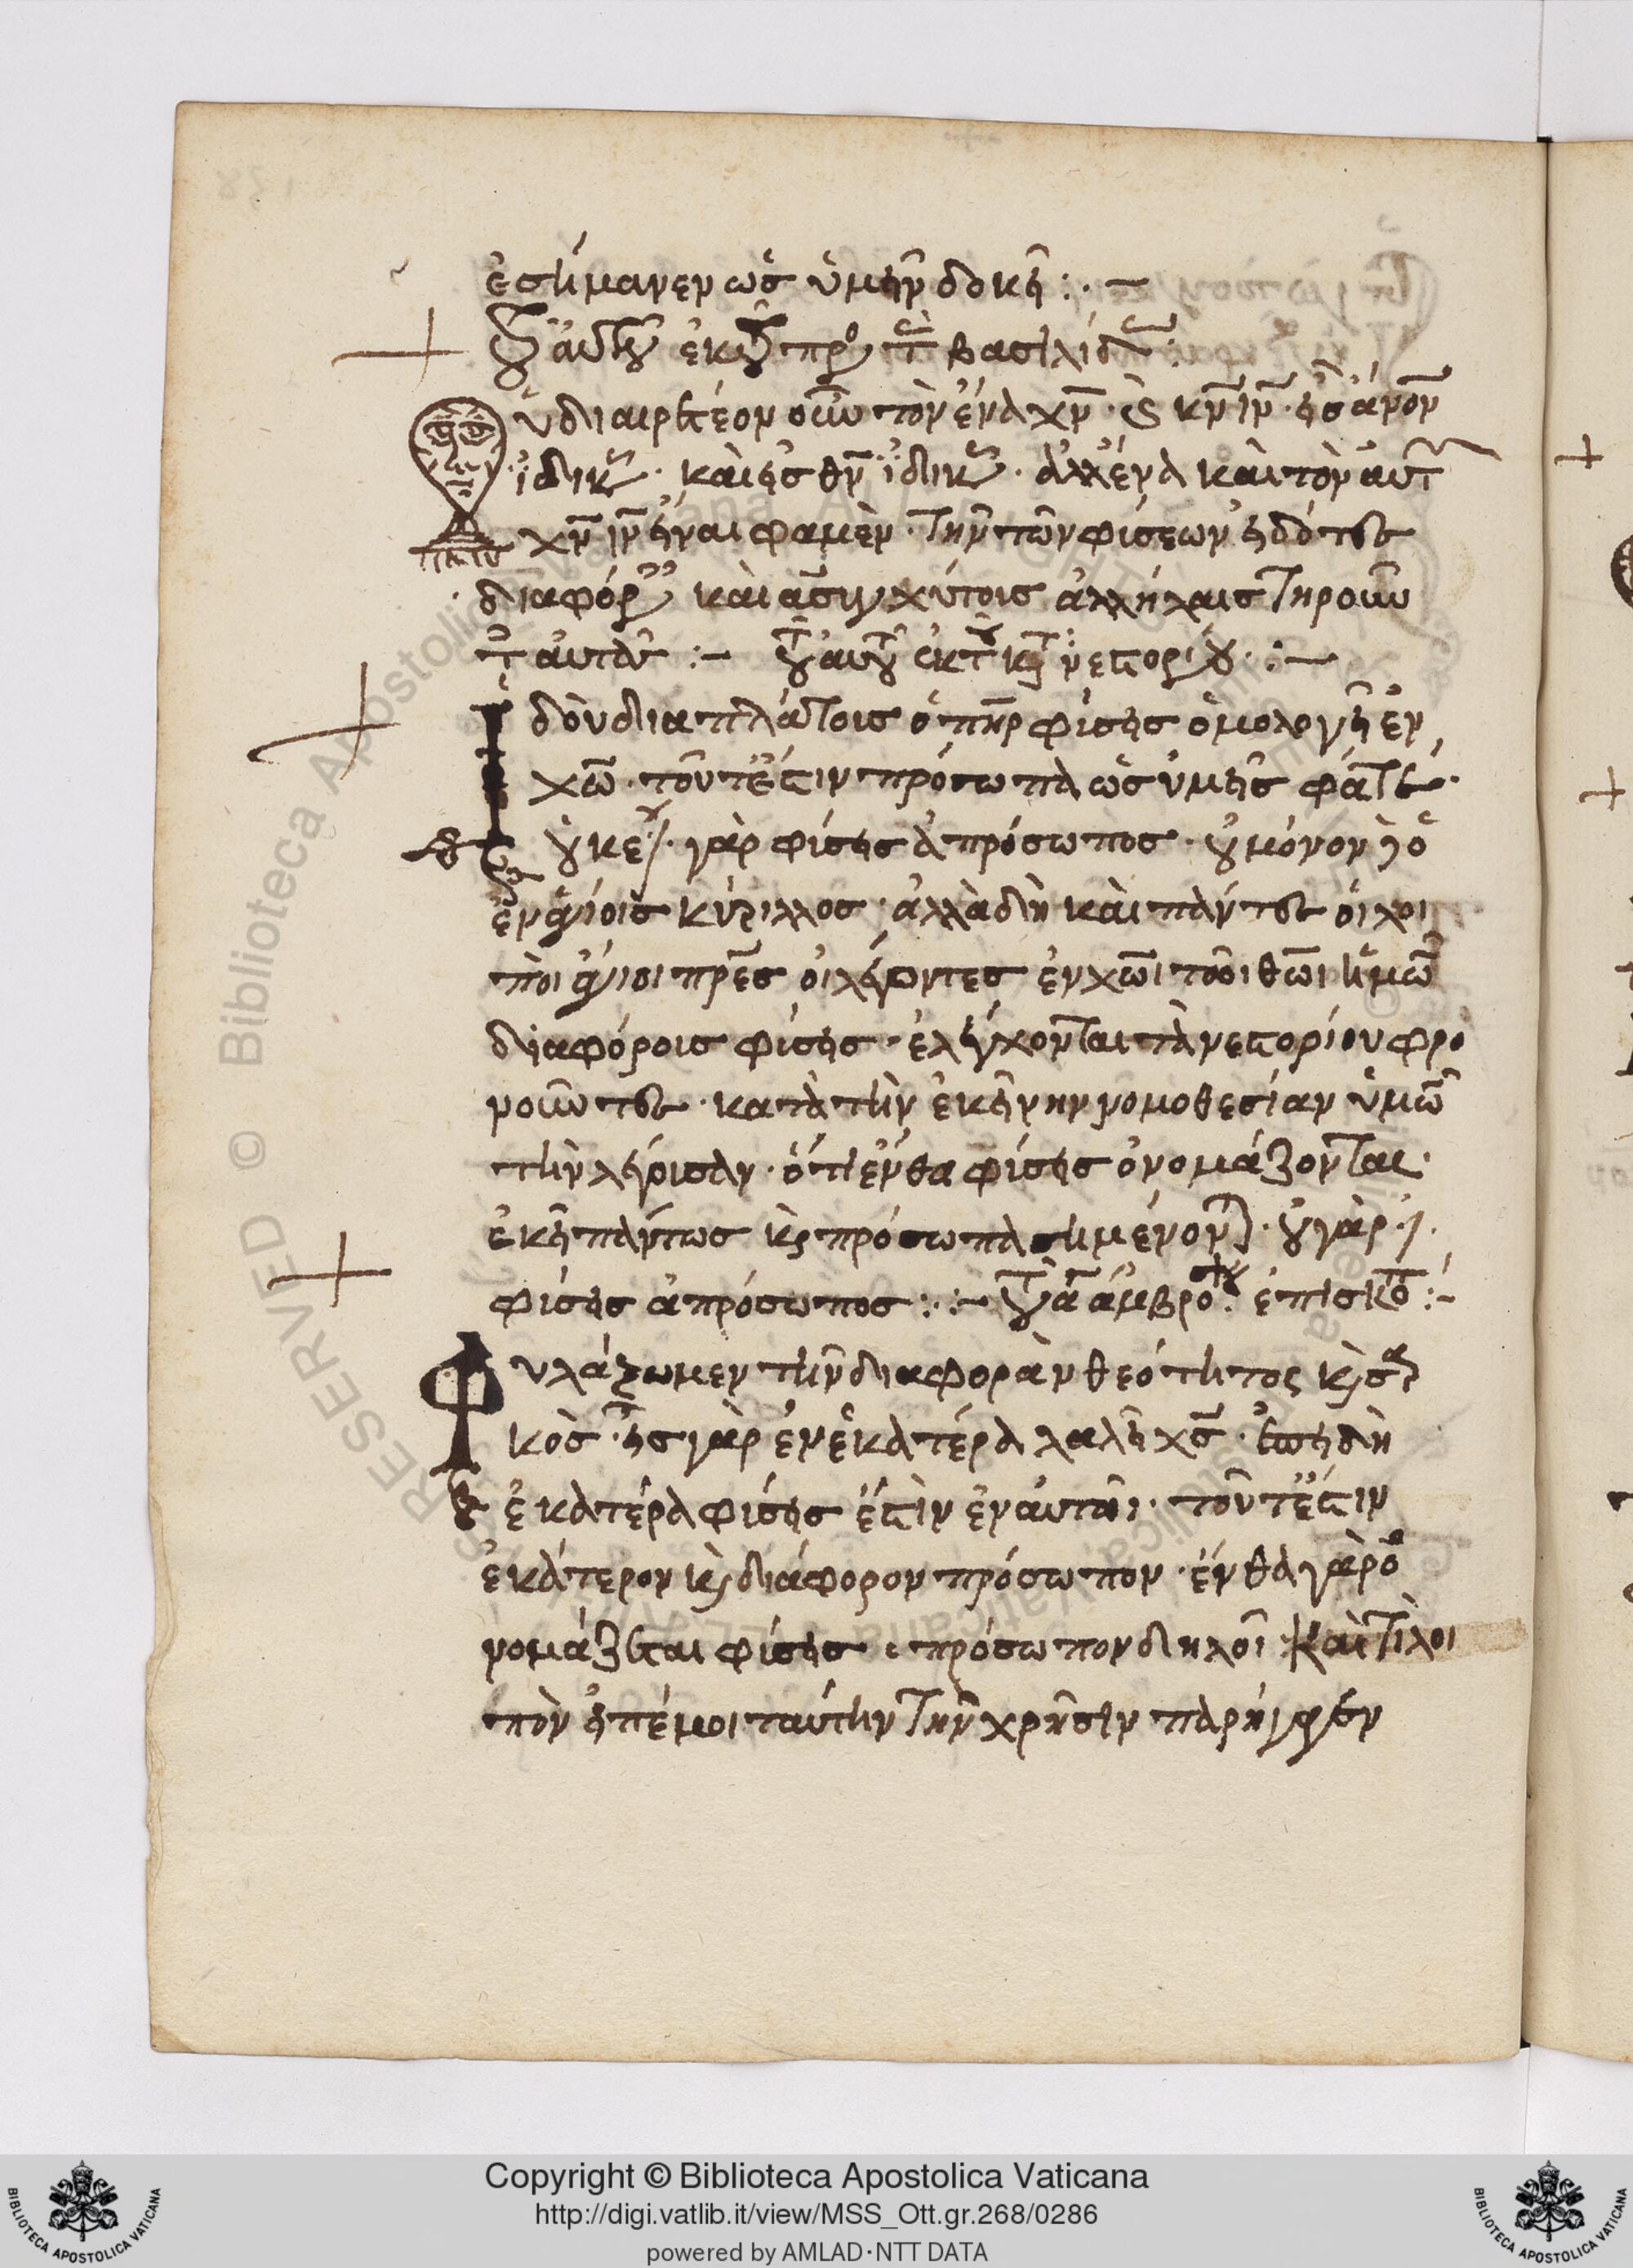 ἐσήμανεν ὡς ὑμῖν δοκεῖ :· —
τοῦ αὐτοῦ ἐκ τοῦ πρὸς τὰς βασιλίδας :
Οὐ διαιρετέον οὖν τὸν ἕνα χν̅ · κν̅ ιν̅ · εἰς ἄνον̅
ἰδικῶς · καὶ εἰς θν̅ ἰδικῶς · ἀλλ' ἕνα καὶ τὸν αὐτ
χν̅ ιν̅ εἶναι φαμὲν · τὴν τῶν φύσεων εἰδότες
διαφορὰν καὶ ἀσυγχύτους ἀλλήλαις τηροῦν
τ αὐτάς :— τοῦ αὐτοῦ ἐκ τ κατὰ νεστορίου :—
Ἰδοὺ διαπλάτοις ὁ πηρ φύσεις ὁμολογεῖ ἐν
χω̅ · τοῦτέστιν πρόσωπα ὡς ὑμεῖς φάτε ·
οὐκ ἔστι γὰρ φύσις ἀπρόσωπος · οὐ μόνον δὲ ὁ
ἐν ἁγίοις κύριλλος · ἀλλὰ δὴ καὶ πάντες οἱ λοι
ποὶ ἅγιοι πρες̅ οἱ λέγοντες ἐν χω̅ι τῶι θω̅ι ἡμῶν
διαφόροις φύσεις · ἐλέγχονται τὰ νεστορίου φρο
νοῦντες · κατὰ τὴν ἐκείνην νομοθεσίαν ὑμῶν
τὴν λέγουσαν · ὅτι ἔνθα φύσεις ὀνομάζονται ·
ἐκεῖ πάντως καὶ πρόσωπα σημένονται · οὐ γὰρ ἔστι
φύσις ἀπρόσωπος :·:— τοῦ ἁ ἀμβροσίου ἐπισκο :—
Φυλάξωμεν τὴν διαφορὰν θεότητος καὶ σαρ
κός · εἷς γὰρ ἐν ἑκατέρα λαλεῖ χς̅ · ἐπειδὴ
ἑκατέρα φύσις ἐστὶν ἐν αὐτῶι · τοῦτέστιν
ἑκάτερον καὶ διάφορον πρόσωπον · ἔνθα γὰρ ὀ
νομάζεται φύσις · πρόσωπον δηλοῖ · Καὶ τί λοι
πὸν εἰπέ μοι ταύτην τὴν χρῆσιν
Copyright © Biblioteca Apostolica Vaticana
http://digi.vatlib.it/view/MSS_Ott.gr.268/0286
powered by AMLAD·NTT DATA